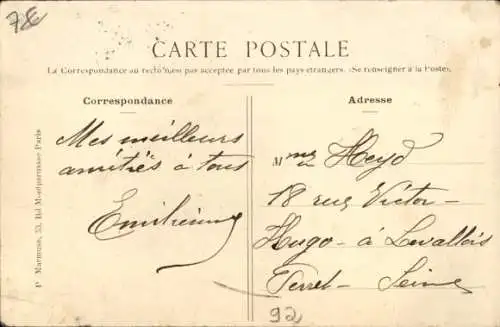 78
CARTE POSTALE
La Correspondance au recto n'est pas acceptée par tous les pays étrangers. (Se renseigner à la Poste).
Correspondance
Adresse
Mes meilleurs
amitiés à tous
Emilienne
Mme Heyd
18 rue Victor-
Hugo - à Levallois
Perret - Seine
92
P. Marmuse, 53, Bd Montparnasse Paris